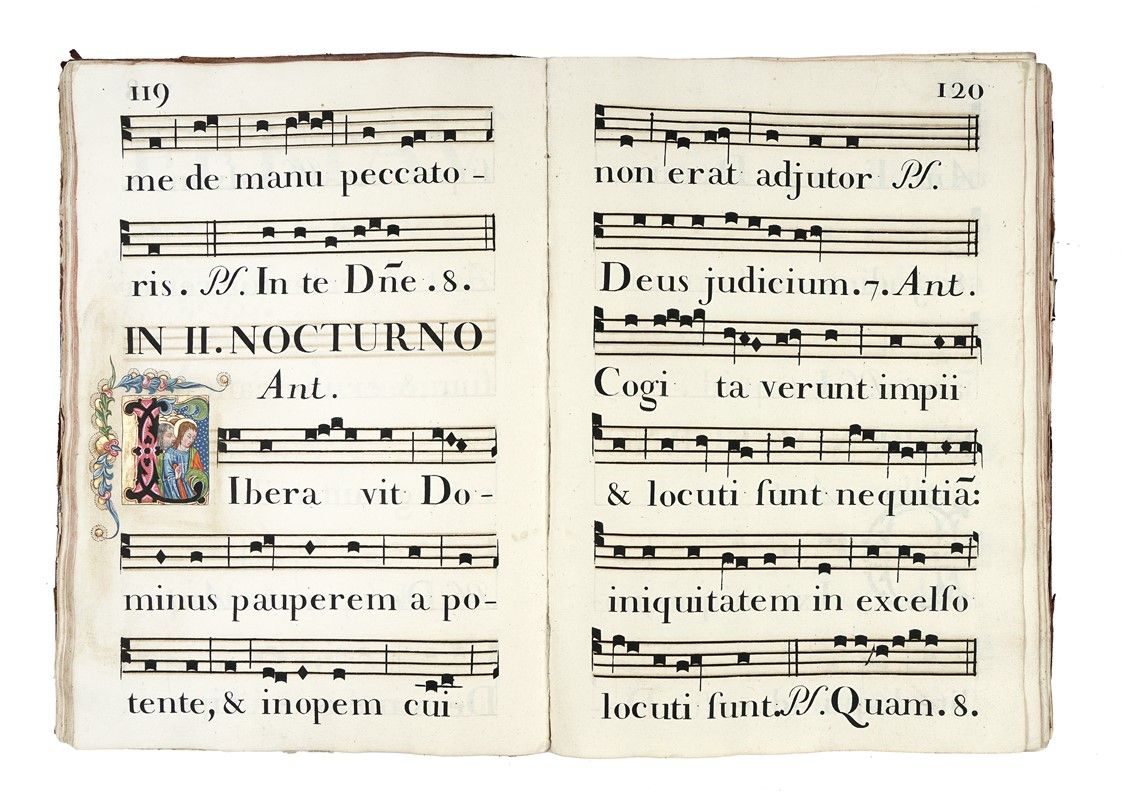 119
me de manu peccato-
ris. Ps. In te Dñe .8.
IN II. NOCTURNO
Ant.
LIbera vit Do-
minus pauperem a po-
tente, & inopem cui
120
non erat adjutor Ps.
Deus judicium. 7. Ant.
Cogi ta verunt impii
& locuti ſunt nequitiã:
iniquitatem in excelſo
locuti ſunt. Ps. Quam. 8.